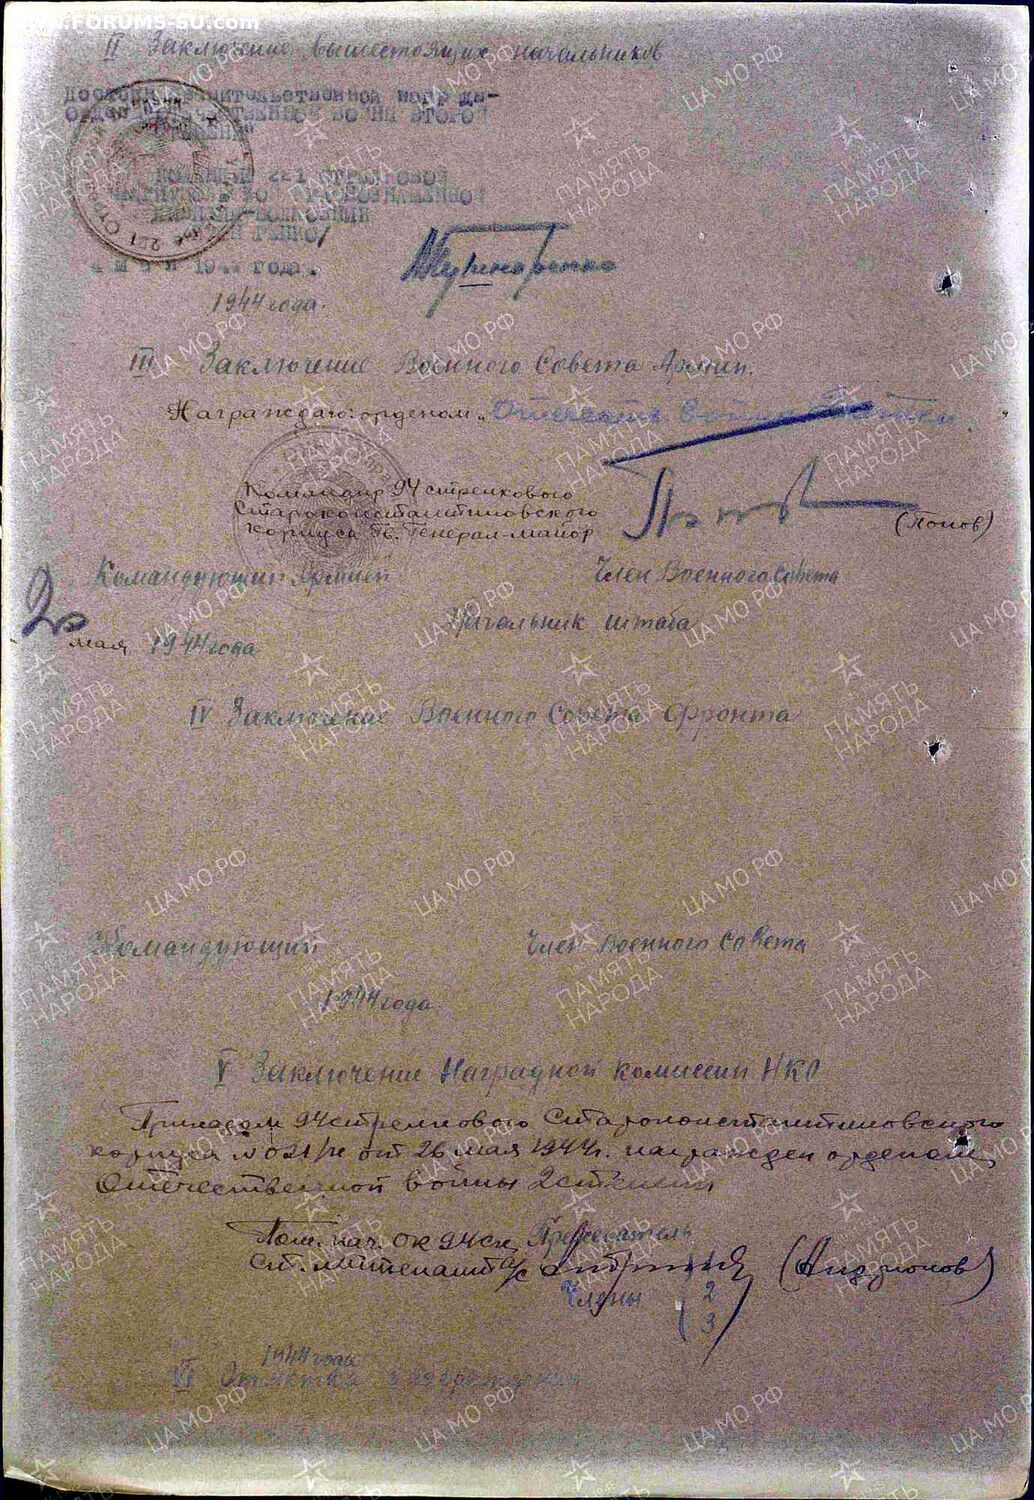 www.FORUMS-SU.com
II Заключение вышестоящих начальников
Достоин правительственной награды-
орден "Отечественной войны второй
степени"
Командир 221 стрелковой
4 мая 1944 года.
1944 года.
III Заключение Военного Совета Армии.
Награждаю: орденом „Отечеств. войны 2 степен.
Командир 94 стрелкового
Староконстантиновского
корпуса Гв. Генерал-майор
(Попов)
Командующий Армией
Член Военного Совета
Начальник штаба
26 мая 1944 года
IV Заключение Военного Совета Фронта
Командующий
Член Военного Совета
1944 года
V Заключение Наградной комиссии НКО
Приказом 94 стрелкового Староконстантиновского
корпуса № 021/н от 26 мая 1944 г. награжден орденом
Отечественной войны 2 степени
Пом. нач. ОК 94 ск
Председатель
ст. лейтенант а/с
(Андрионов)
Члены
2
3
1944 года
VI Отметка о награждении
ПАМЯТЬ НАРОДА
ЦА МО РФ